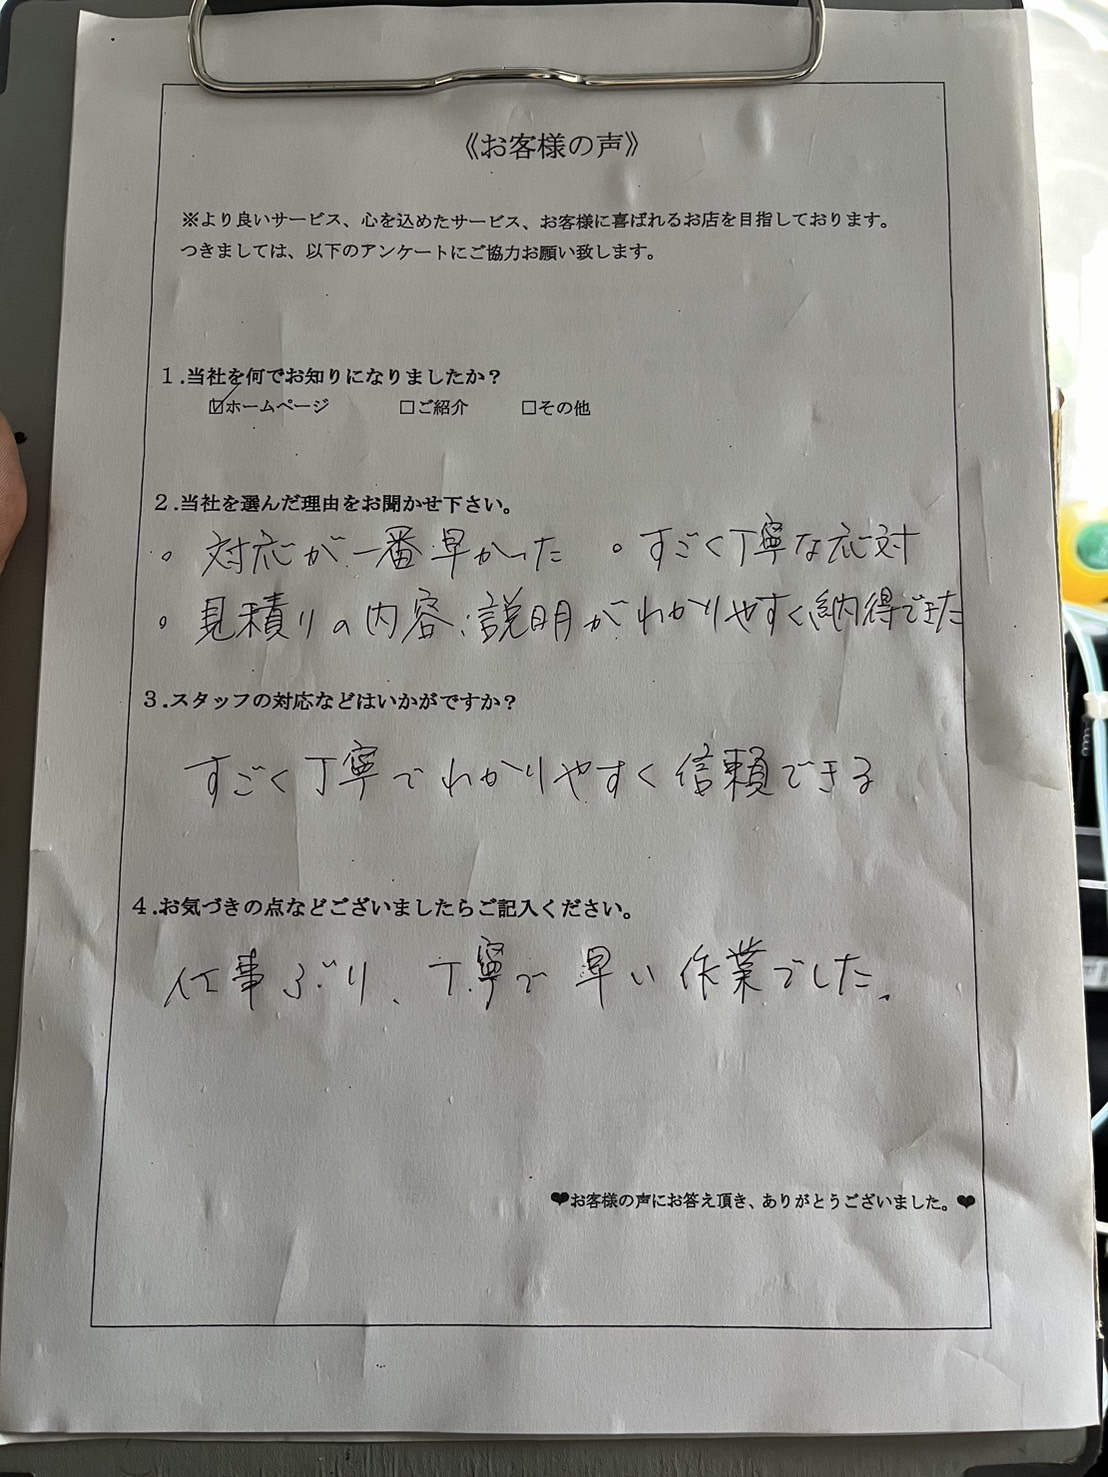 《お客様の声》
※より良いサービス、心を込めたサービス、お客様に喜ばれるお店を目指しております。
つきましては、以下のアンケートにご協力お願い致します。
1.当社を何でお知りになりましたか？
☑ホームページ □ご紹介 □その他
2.当社を選んだ理由をお聞かせ下さい。
。対応が一番早かった 。すごく丁寧な応対
。見積りの内容、説明がわかりやすく納得できた
3.スタッフの対応などはいかがですか？
すごく丁寧でわかりやすく信頼できる
4.お気づきの点などございましたらご記入ください。
仕事ぶり、丁寧で早い作業でした。
❤お客様の声にお答え頂き、ありがとうございました。❤